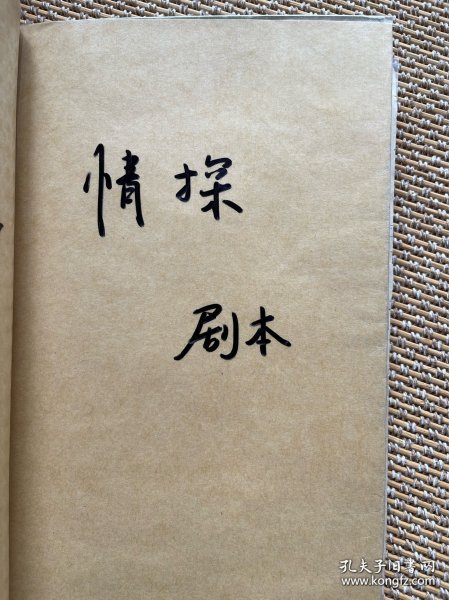 情探
剧本
孔夫子旧书网
www.kongfz.com